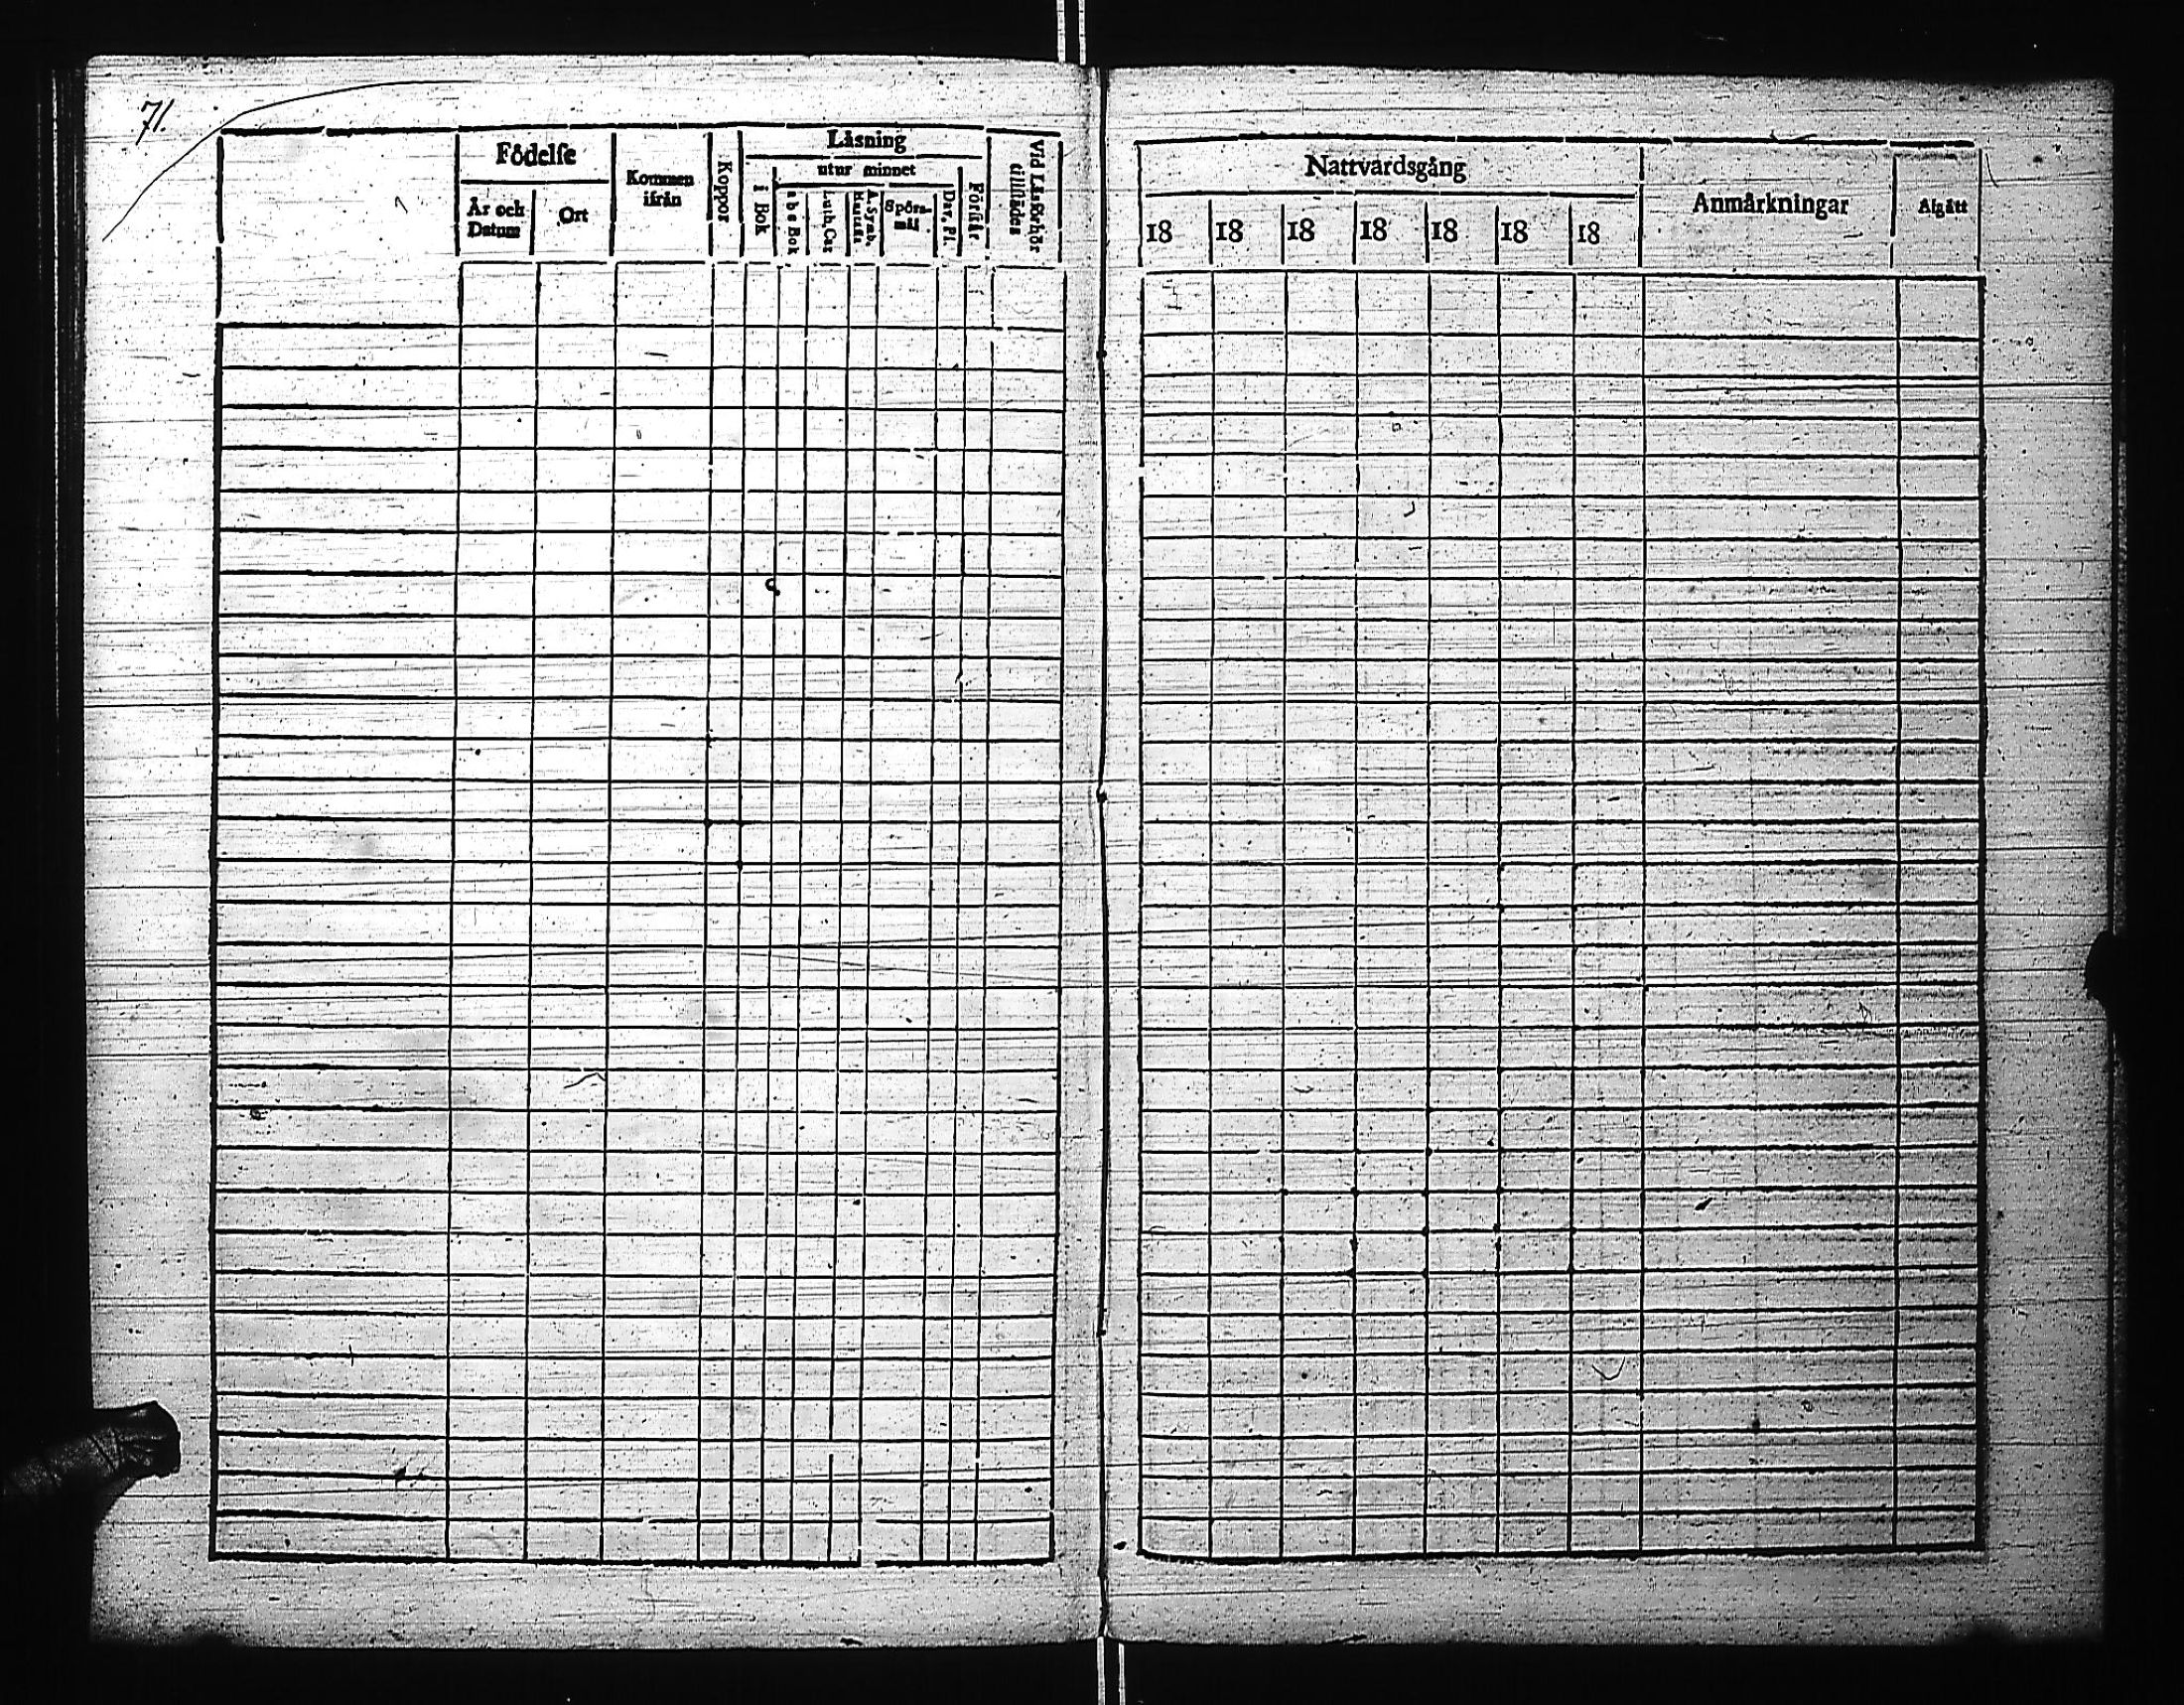 71.
Födelse
År och Datum
Ort
Kommen ifrån
Koppor
Läsning
utur minnet
i Bok
a b c Bok
Luth. Cat
A. Symb.
Spörsmål
Dav. Ps.
Förstår
Vid Läsförhör tillstädes
Nattvardsgång
18 18 18 18 18 18 18
Anmärkningar
Afgått